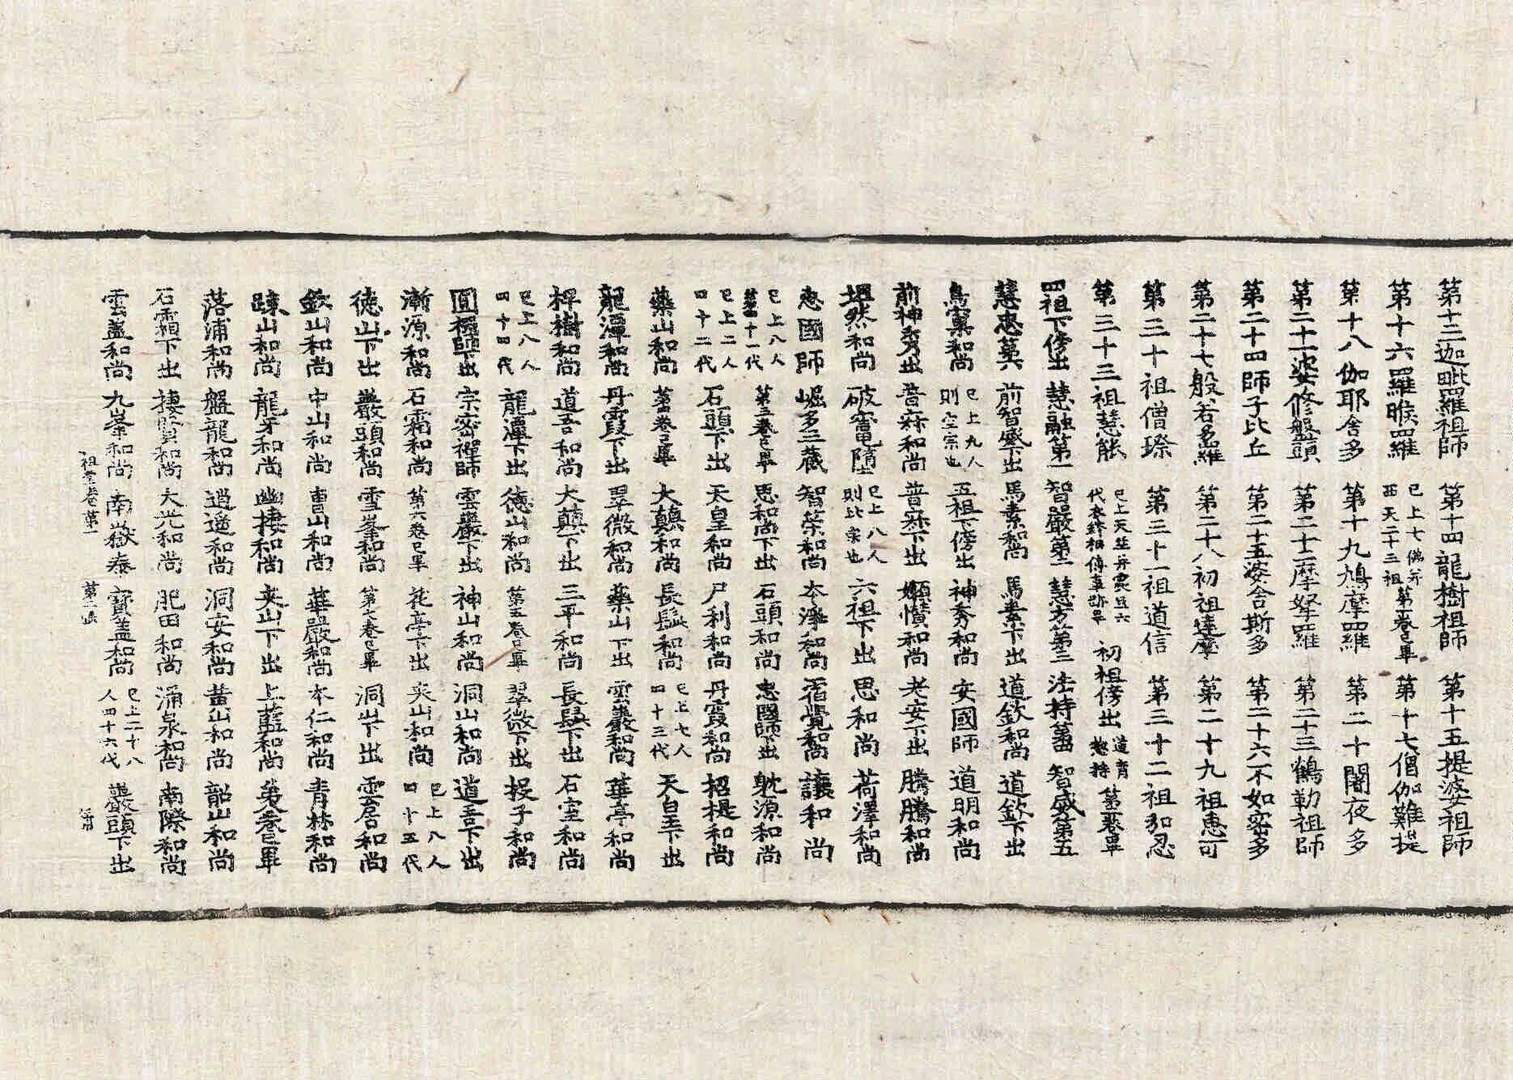 第十三迦毗羅祖師 第十四龍樹祖師 第十五提婆祖師
第十六羅睺羅 已上七佛并西天二十三祖 第一卷已畢 第十七僧伽難提
第十八伽耶舍多 第十九鳩摩羅 第二十闍夜多
第二十一婆修盤頭 第二十二摩拏羅 第二十三鶴勒祖師
第二十四師子比丘 第二十五婆舍斯多 第二十六不如密多
第二十七般若多羅 第二十八初祖達摩 第二十九祖惠可
第三十祖僧璨 第三十一祖道信 第三十二祖弘忍
第三十三祖慧能 已上天竺 代 相傳 初祖傍出 道育 惣持 第二卷畢
四祖下傍出 慧融第一 智嚴第二 慧方第三 法持第四 智威第五
慧忠第六 前智威下出 馬素和尚 馬素下出 道欽和尚 道欽下出
鳥窠和尚 已上九人則空宗也 五祖下傍出 神秀和尚 安國師 道明和尚
前神秀下出 普寂和尚 普寂下出 嬾懶和尚 老安下出 騰騰和尚
坦然和尚 破竈墮 已上八人則北宗也 六祖下出 思和尚 荷澤和尚
惠國師 崛多三藏 智策和尚 本淨和尚 宿覺和尚 讓和尚
已上八人第四十一代 第三卷已畢 思和尚下出 石頭和尚 忠國師下出 躭源和尚
已上二人四十二代 石頭下出 天皇和尚 尸利和尚 丹霞和尚 招提和尚
藥山和尚 第四卷已畢 大顛和尚 長髭和尚 已上七人四十三代 天皇下出
龍潭和尚 丹霞下出 翠微和尚 藥山下出 雲巖和尚 華亭和尚
椑樹和尚 道吾和尚 大顛下出 三平和尚 長髭下出 石室和尚
已上八人四十四代 龍潭下出 德山和尚 第五卷已畢 翠微下出 投子和尚
圓禪師下出 宗密禪師 雲巖下出 神山和尚 洞山和尚 道吾下出
漸源和尚 石霜和尚 第六卷已畢 花亭下出 夾山和尚 已上八人四十五代
德山下出 巖頭和尚 雪峯和尚 第七卷已畢 洞山下出 雲居和尚
欽山和尚 中山和尚 曹山和尚 華嚴和尚 本仁和尚 青林和尚
踈山和尚 龍牙和尚 幽棲和尚 夾山下出 上藍和尚 第八卷已畢
落浦和尚 盤龍和尚 逍遥和尚 洞安和尚 黃山和尚 韶山和尚
石霜下出 棲賢和尚 大光和尚 肥田和尚 涌泉和尚 南際和尚
雲盖和尚 九峯和尚 南嶽泰 寶盖和尚 已上二十八人四十六代 巖頭下出
祖堂卷第一 第二